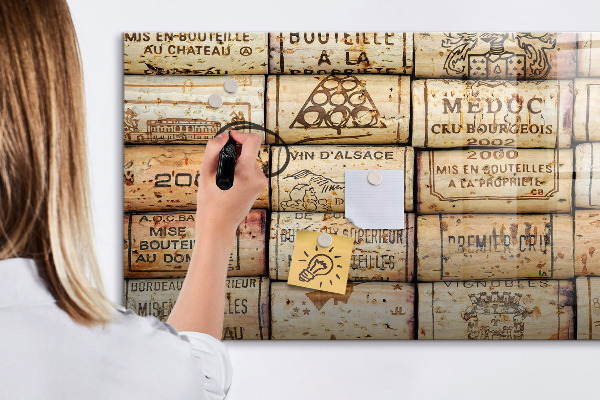 MIS EN BOUTEILLE
AU CHATEAU
BOUTEILLE
À LA
PROPRIETE
MEDOC
CRU BOURGEOIS
2002
2000
MIS EN BOUTEILLES
A LA PROPRIETE
CB
VIN D'ALSACE
A.O.C.BA
MISE
BOUTEI
AU DOM
SUPERIEUR
BOUTEILLES
PREMIER CRU
BORDEAUX SUPERIEUR
VIGNOBLES